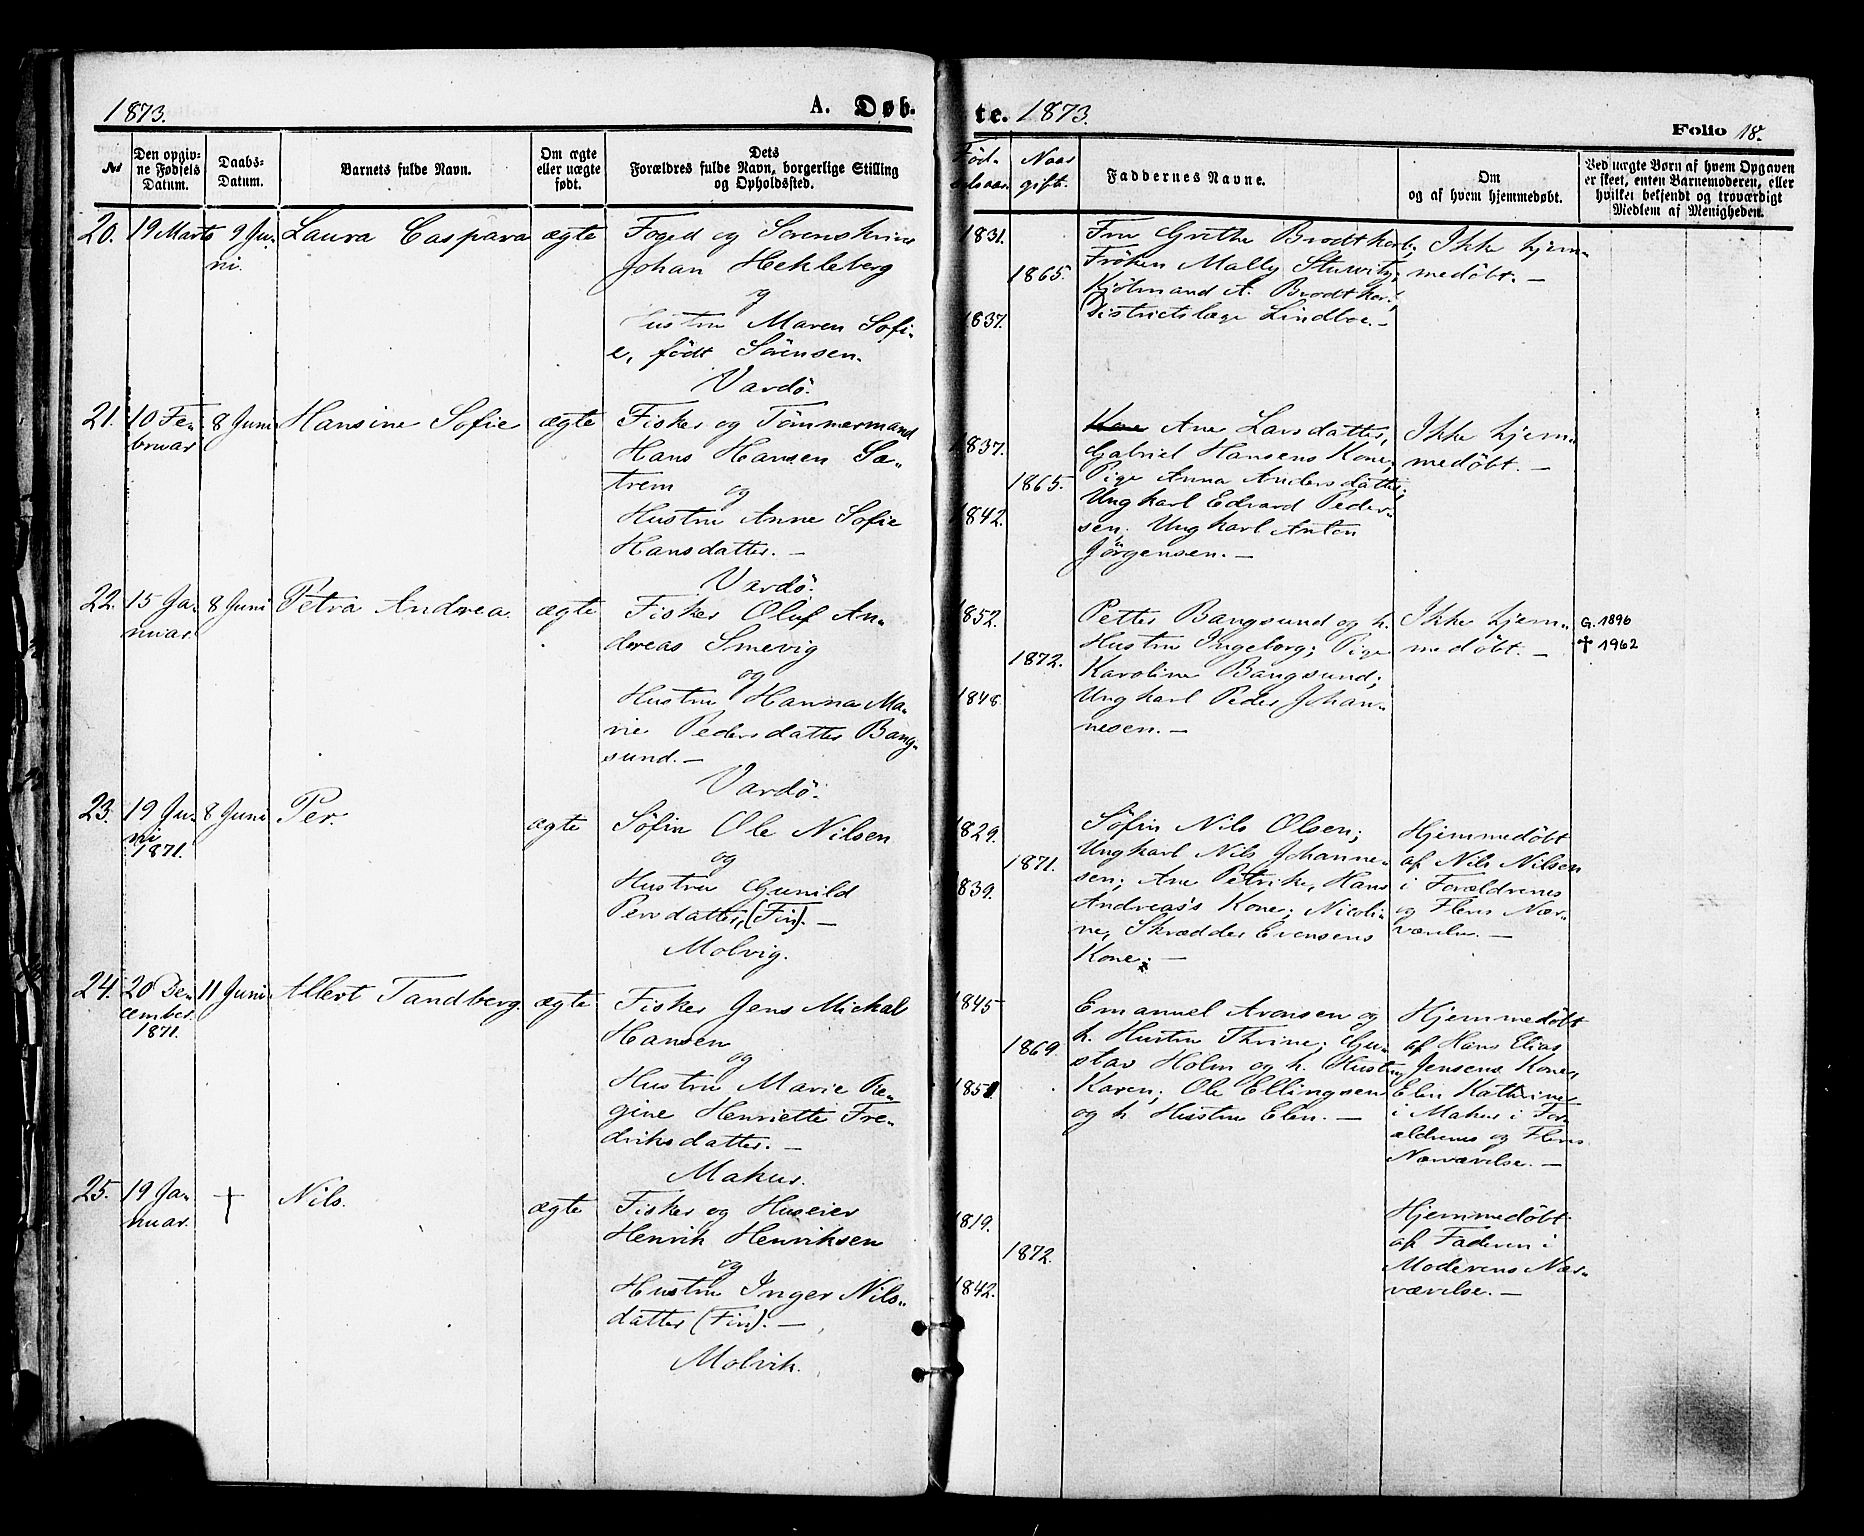 1873.
A. Døb-
te. 1873.
Folio 18.
No
Den opgiv-
ne Fødsels
Datum.
Daabs-
Datum.
Barnets fulde Navn.
Om ægte
eller uægte
født.
Dets
Forældres fulde Navn, borgerlige Stilling
og Opholdssted.
Fød-
Naar
gift.
Faddernes Navne.
Om
og af hvem hjemmedøbt.
Ved uægte Børn af hvem Opgaven
er skeet, enten Barnemoderen, eller
hvilket bekjendt og troværdigt
Medlem af Menigheden.
20.
19 Marts
9 Ju-
ni.
Laura Caspara
ægte
Foged og Sorenskriver
Johan Hekleberg
og
Hustru Maren Sofi-
e, født Sørensen.
Vardö.
1831.
1865.
1837.
Fru Grethe Brodtkorb;
Fröken Mally Stuwitz;
Kjöbmand A. Brodtkorb;
Districtslæge Lindboe.-
Ikke hjem-
medöbt.-
21.
10 Fe-
bruar
8 Juni
Hansine Sofie
ægte
Fisker og Tömmermand
Hans Hansen Sæ-
trem
og
Hustru Anne Sofie
Hansdatter.-
Vardö.
1837.
1865.
1842.
Kone Ane Larsdatter,
Gabriel Hansens Kone;
Pige Anna Andersdatter;
Ungkarl Edvard Peder-
sen; Ungkarl Anton
Jörgensen.-
Ikke hjem-
medöbt.-
22.
15 Ja-
nuar.
8 Juni
Petra Andrea.
ægte
Fisker Oluf An-
dreas Smevig
og
Hustru Hanna Ma-
rie Pedersdatter Bang-
sund.-
Vardö.
1852.
1872.
1848.
Petter Bangsund og h.
Hustru Ingeborg; Pige
Karoline Bangsund;
Ungkarl Peder Johan-
nesen.-
Ikke hjem-
medöbt.-
G. 1896
✝ 1962
23.
19 Ju-
ni
1871.
8 Juni
Per.
ægte
Söfin Ole Nilsen
og
Hustru Gunild
Persdatter, (Fin).-
Molvig.
1829.
1871.
1839.
Söfin Nils Olsen;
Ungkarl Nils Johanne-
sen; Ane Petrike, Hans
Andreas's Kone; Nicoli-
ne, Skrædder Evensens
Kone;-
Hjemmedöbt
af Nils Nilsen
i Forældrenes
og Fleres Nær-
værelse.-
24.
20 De-
cember
1871.
11 Juni
Albert Tandberg.
ægte
Fisker Jens Mickal
Hansen
og
Hustru Marie Re-
gine Henriette Fre-
driksdatter.-
Makur.
1845
1869.
1851
Emanuel Aronsen og
h. Hustru Thrine; Gu-
stav Holm og h. Hustru
Karen; Ole Ellingsen
og h. Hustru Elen.-
Hjemmedöbt
af Hans Elias
Jensens Kone,
Elen Kathrine
i Makur i For-
ældrenes og Fleres
Nærværelse.-
25.
19 Ja-
nuar.
†
Nils.
ægte
Fisker og Huseier
Henrik Henriksen
og
Hustru Inger Nils-
datter (Fin).-
Molvik.
1819.
1872.
1842.
Hjemmedöbt
af Faderen i
Moderens Nær-
værelse.-